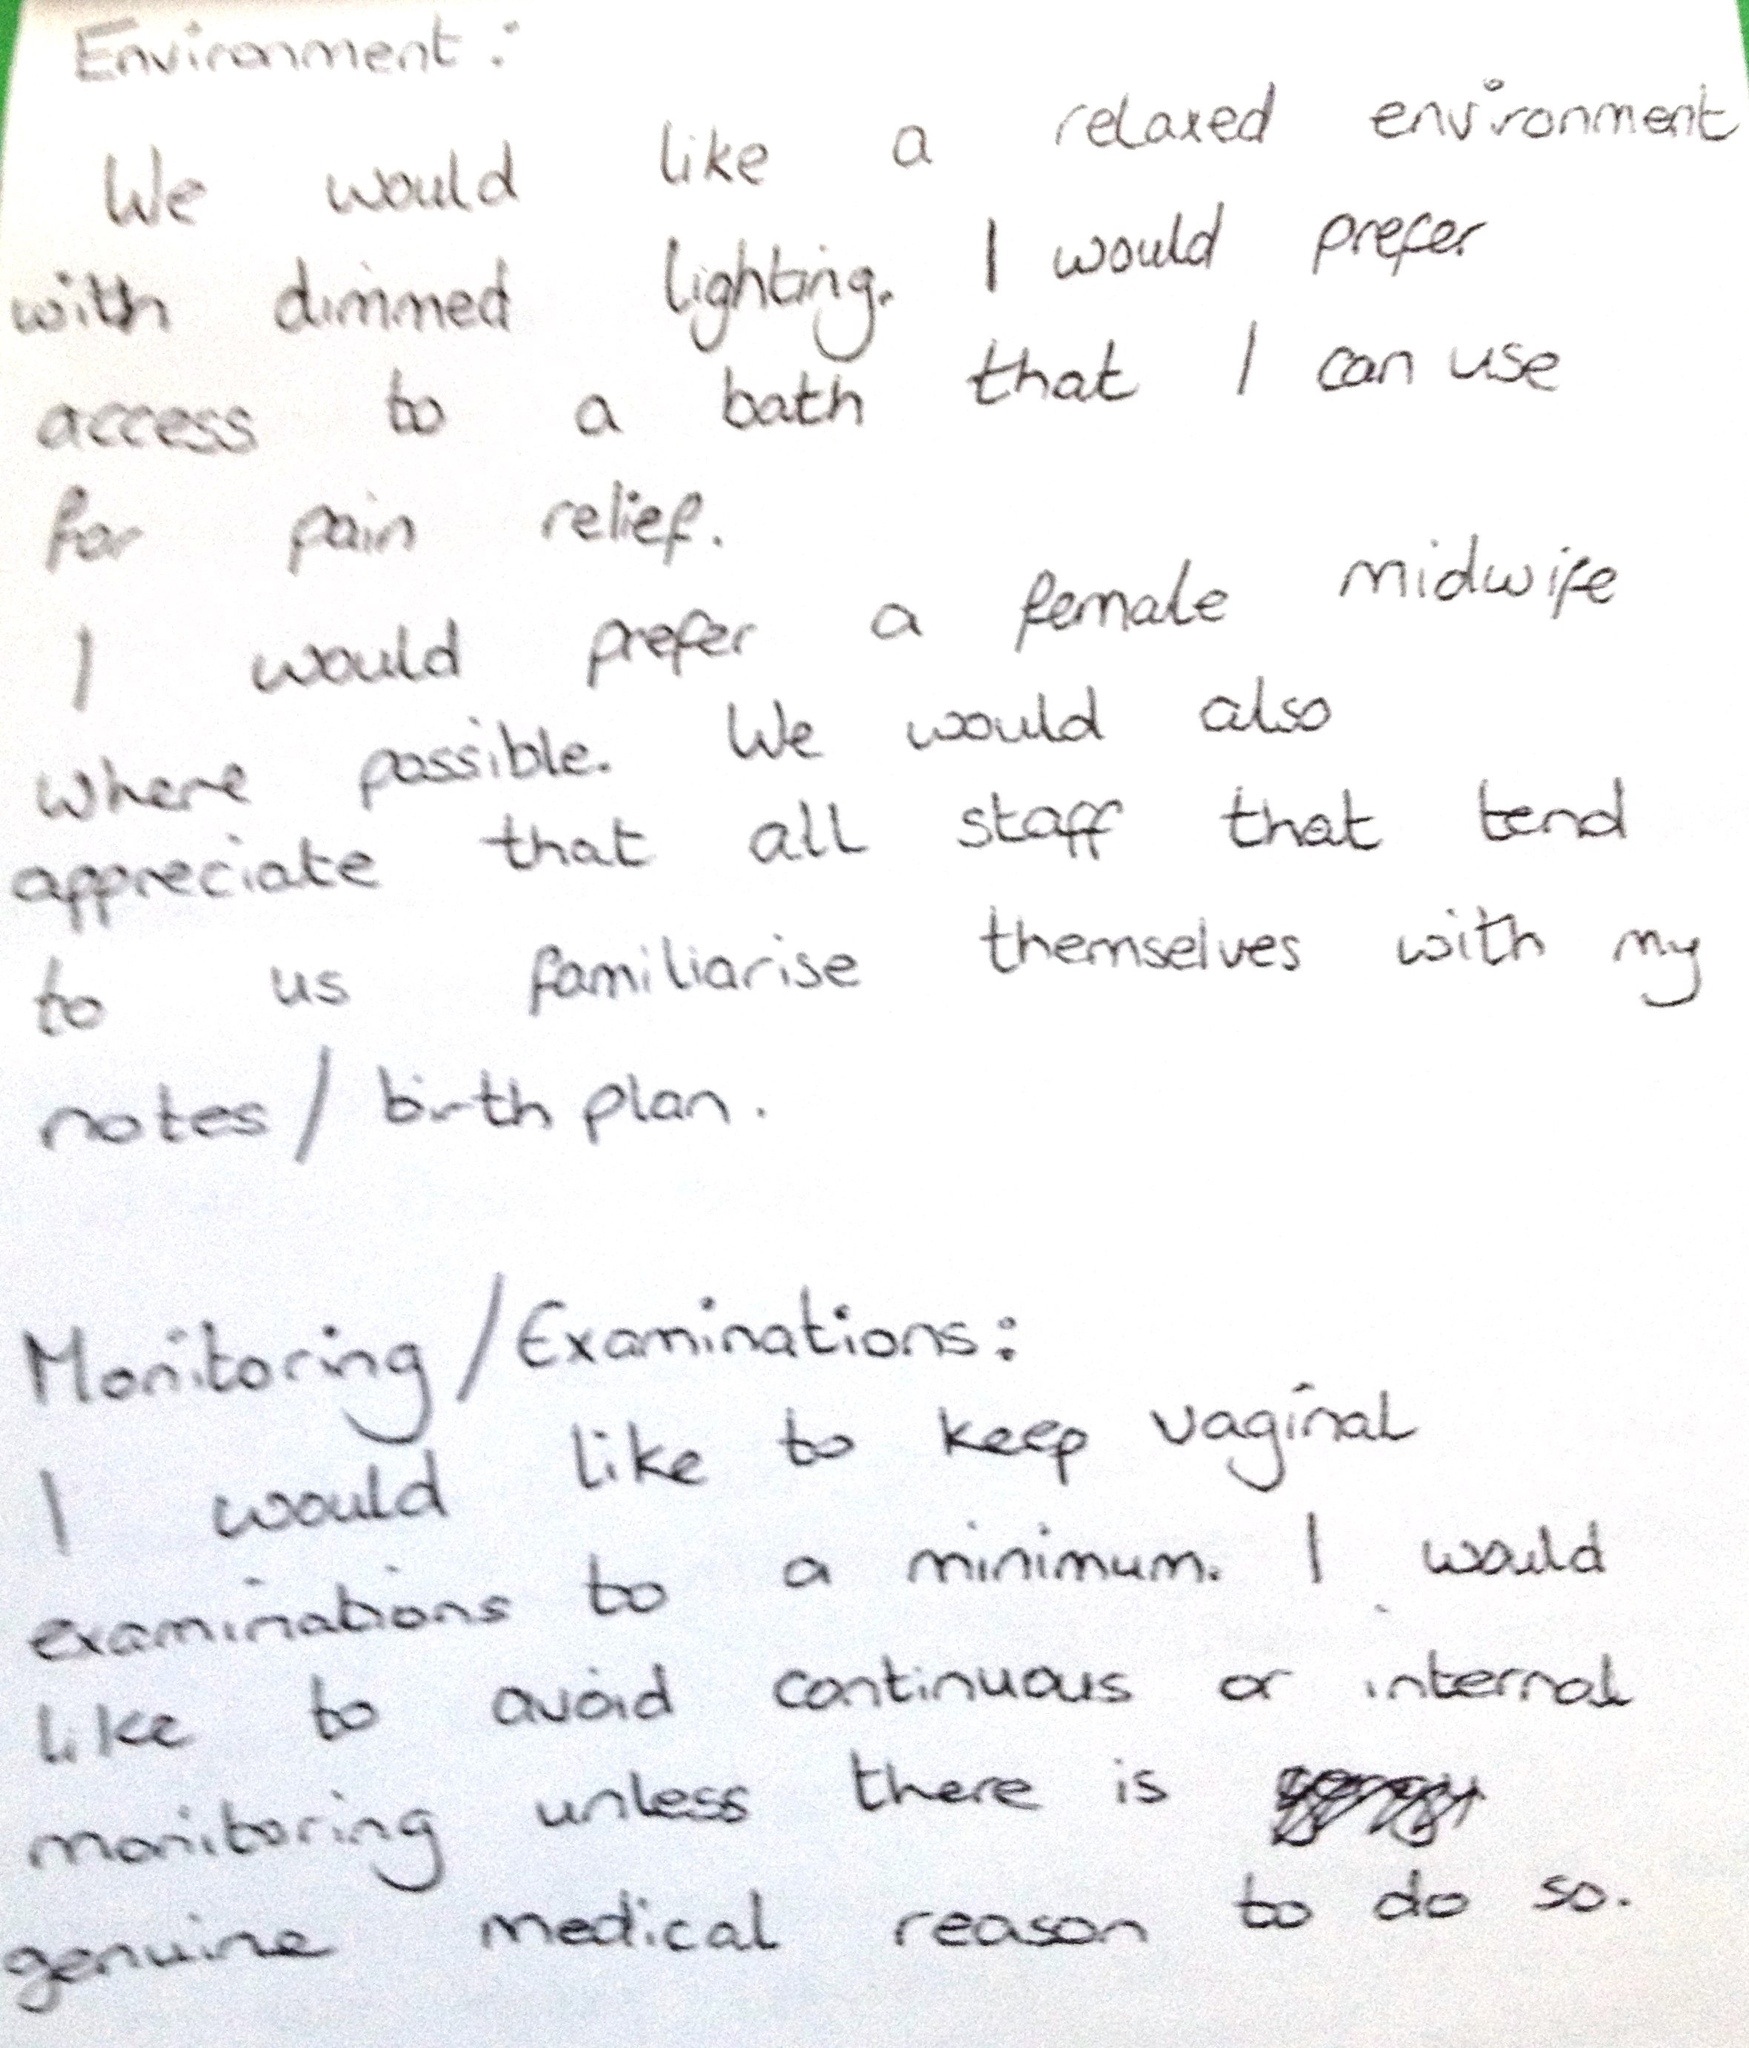 Environment:
We would like a relaxed environment
with dimmed lighting. I would prefer
access to a bath that I can use
for pain relief.
I would prefer a female midwife
where possible. We would also
appreciate that all staff that tend
to us familiarise themselves with my
notes/ birth plan.
Monitoring/Examinations:
I would like to keep vaginal
examinations to a minimum. I would
like to avoid continuous or internal
monitoring unless there is
genuine medical reason to do so.